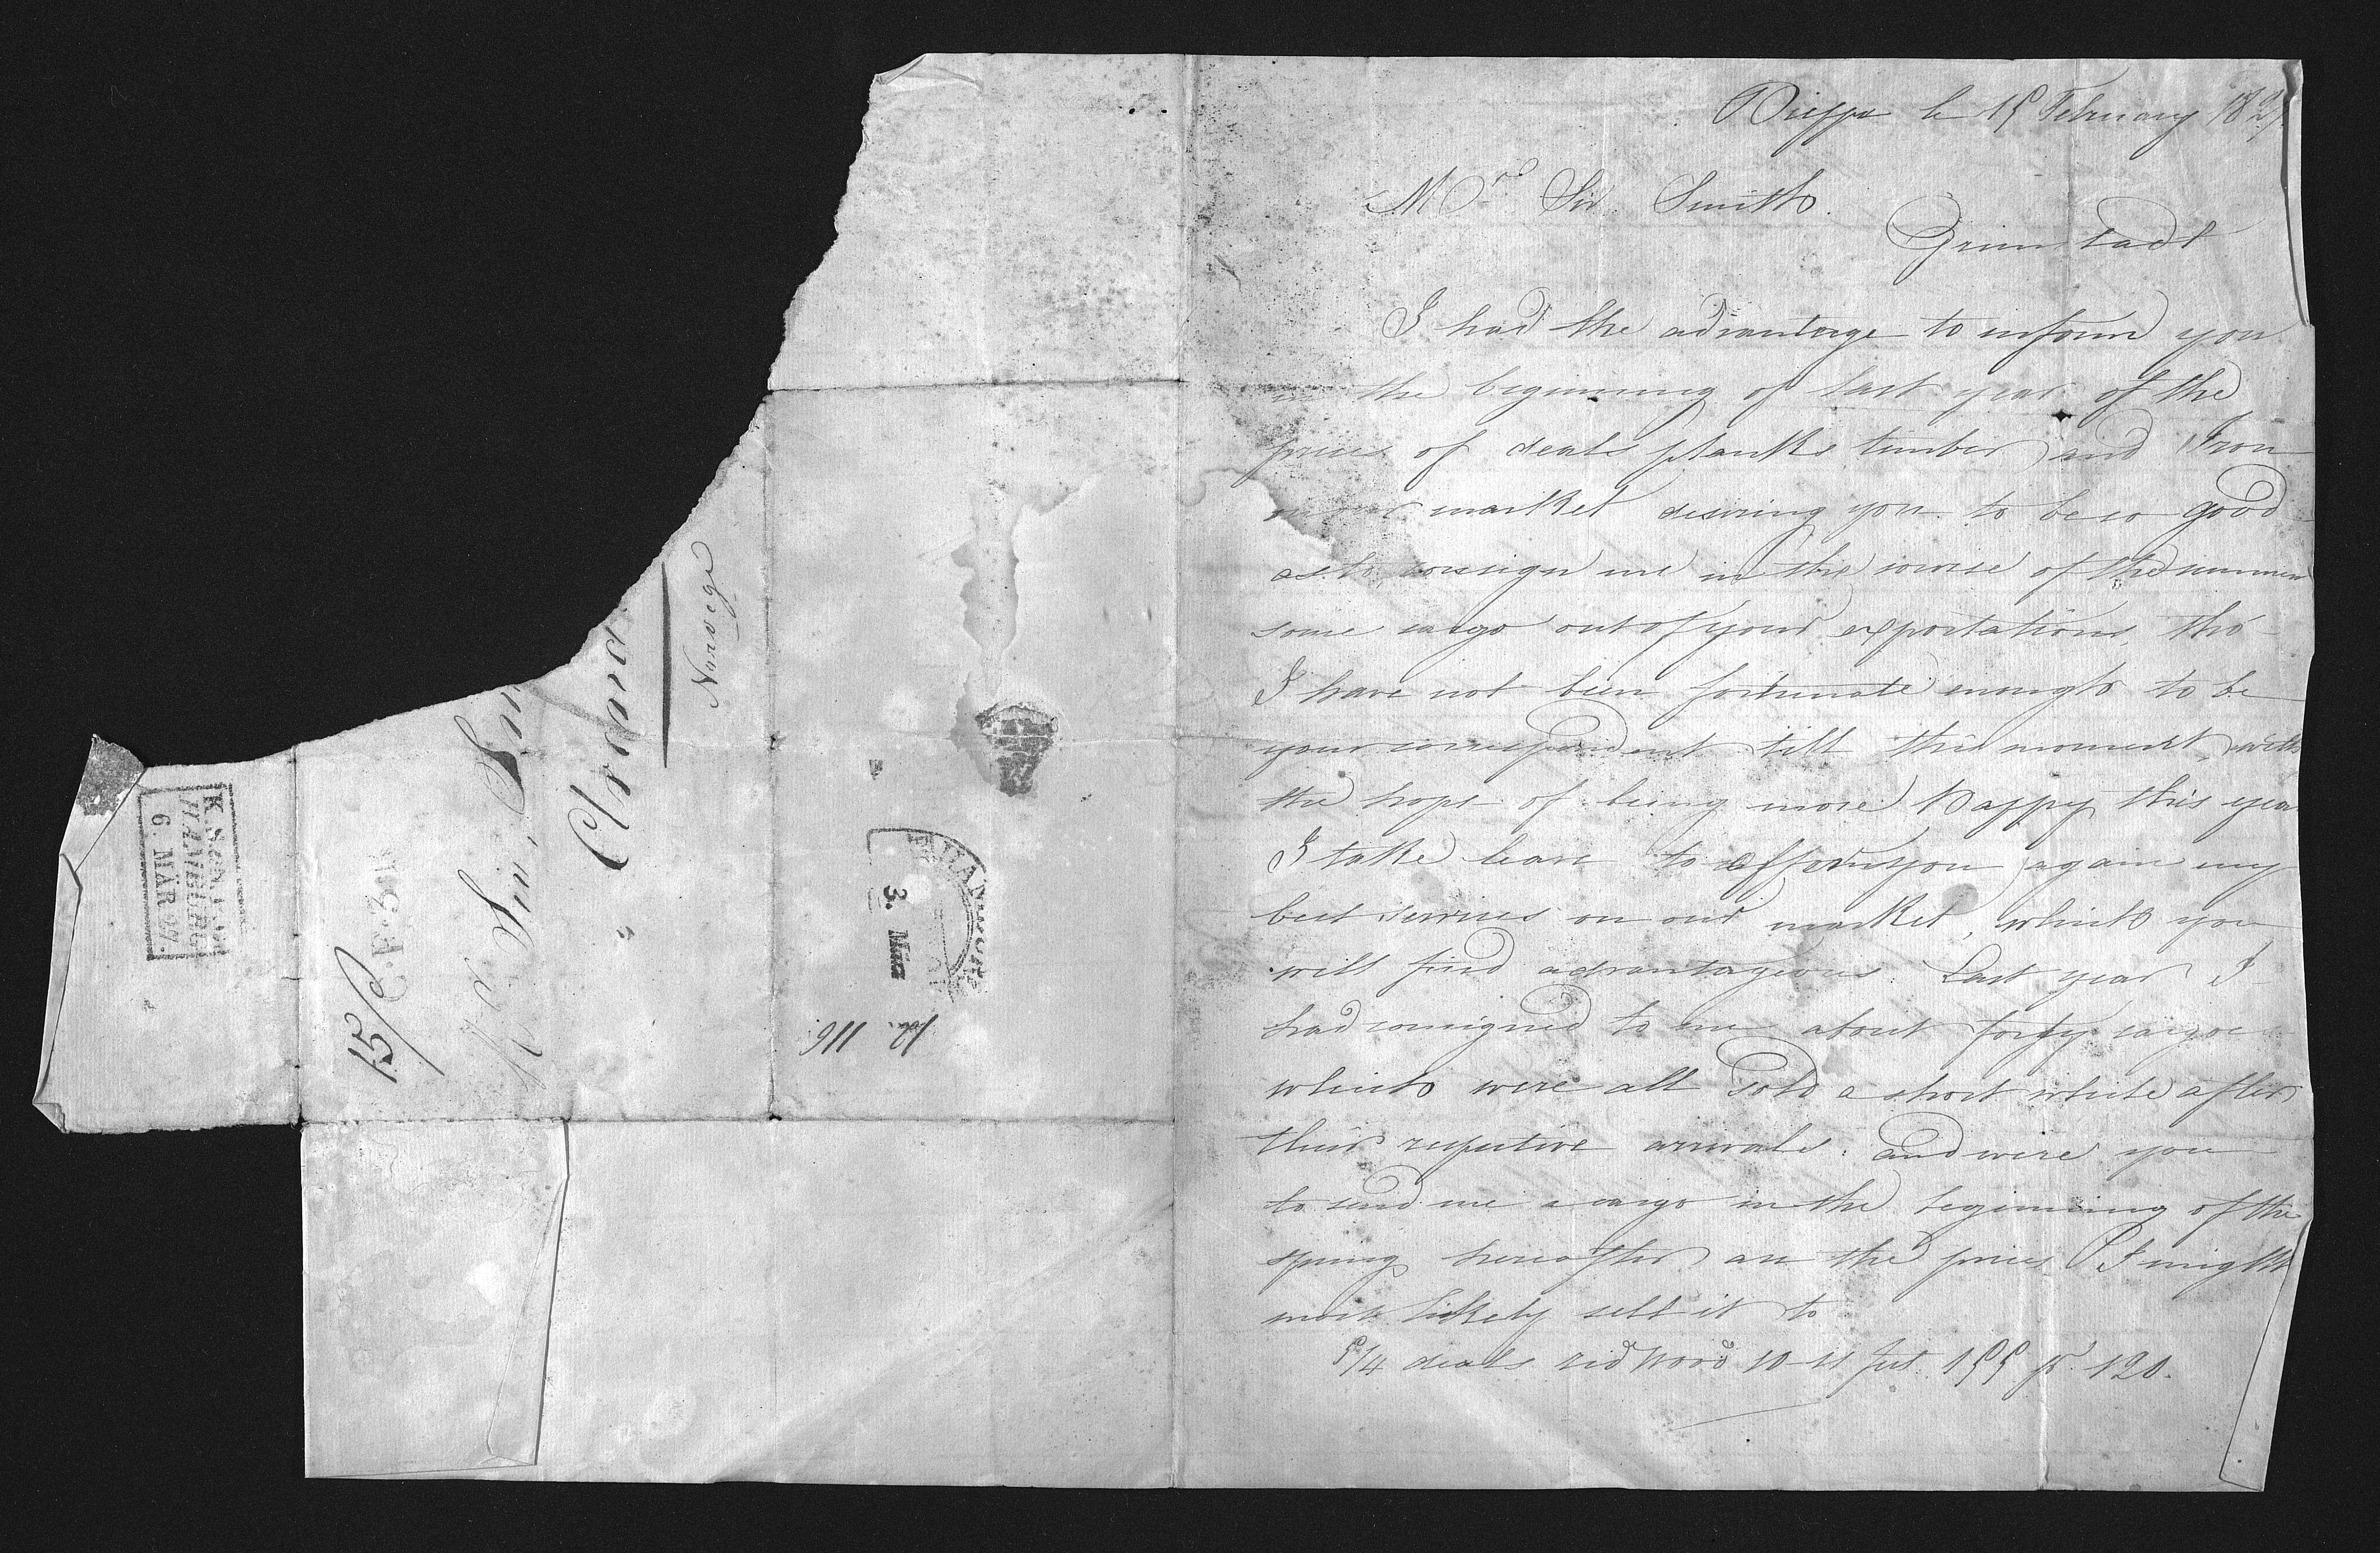 Dieppe le 15 February 1827
M.rs Siv. Smith.
Grimstadt
I had the advantage to inform you
in the beginning of last year of the
prices of deals planks timber and Iron
on our market desiring you to be so good
as to consign me in the course of the summer
some cargo out of your exportations, tho'
I have not been fortunate enough to be
your correspondent till this moment, with
the hope of being more happy this year
I take leave to offer you again my
best services on our market, which you
will find advantageous. Last year I
had consigned to me about forty cargoe
which were all sold a short while after
their respective arrivals. and were you
to send me a cargo in the beginning of the
spring hereafter are the prices I might
most likely sell it to
5/4 deals red wood 10 - 11 feet 155 fr. 120.
Norvege
Siv. Sm
K. S.
HAMBURG
6. MÄR 27.
C.F.3.R
15/
HAMBURG
3. März
116